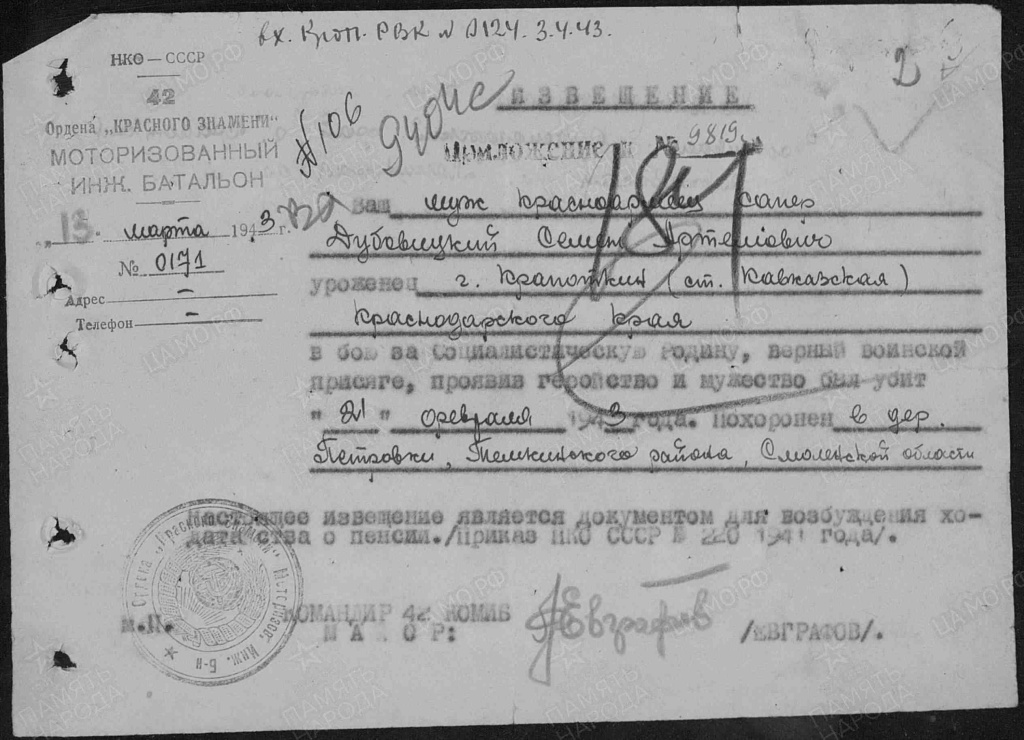 вх. Кроп. РВК № 0124. 3.4.43.
2
НКО — СССР
42
Ордена „КРАСНОГО ЗНАМЕНИ"
МОТОРИЗОВАННЫЙ
ИНЖ. БАТАЛЬОН
„13" марта 1943 г.
№ 0171
Адрес —
Телефон —
№106
ИЗВЕЩЕНИЕ
Приложение к № 9819
181
Ваш муж красноармеец сапер
Дубовицкий Семен Артемович
уроженец г. Крапоткин (ст. Кавказская)
Краснодарского края
в бою за Социалистическую Родину, верный воинской
присяге, проявив геройство и мужество был убит
"21" февраля 1943 года. Похоронен в дер.
Петровки, Темкинского района, Смоленской области
Настоящее извещение является документом для возбуждения хо-
датайства о пенсии./Приказ НКО СССР № 220 1941 года/.
м.П.
КОМАНДИР 42 КОМИБ
МАЙОР: Евграфов /ЕВГРАФОВ/.
Ордена „Красного Знамени" Моторизов. Инж. б-н
ПАМЯТЬ НАРОДА
ЦАМО.РФ